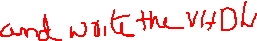 and write the VHDL